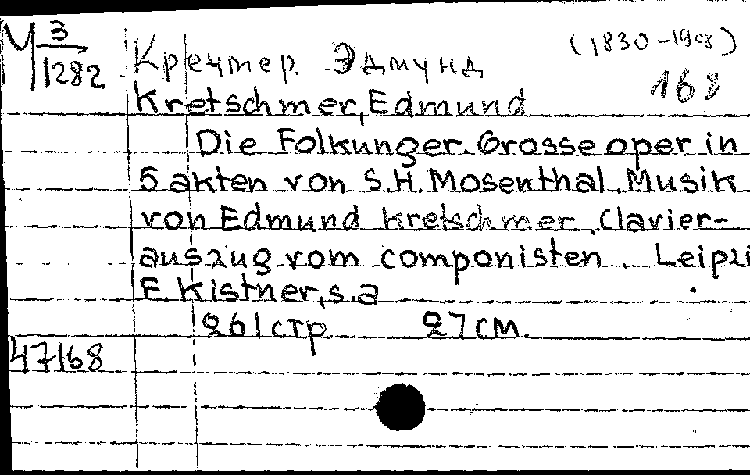 М 3/1282
Кречмер. Эдмунд (1830-1908)
168
Kretschmer, Edmund
Die Folkunger. Grosse oper in
5 akten von S.H. Mosenthal. Musik
von Edmund Kretschmer. Clavier-
auszug vom componisten. Leipzi
E. Kistner, s.a
261 стр 27 см.
47168